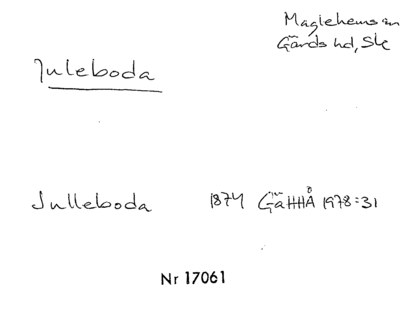 Maglehems sn
Gärds hd, Sk
Juleboda
Julleboda 1874 GäHHÅ 1978:31
Nr 17061